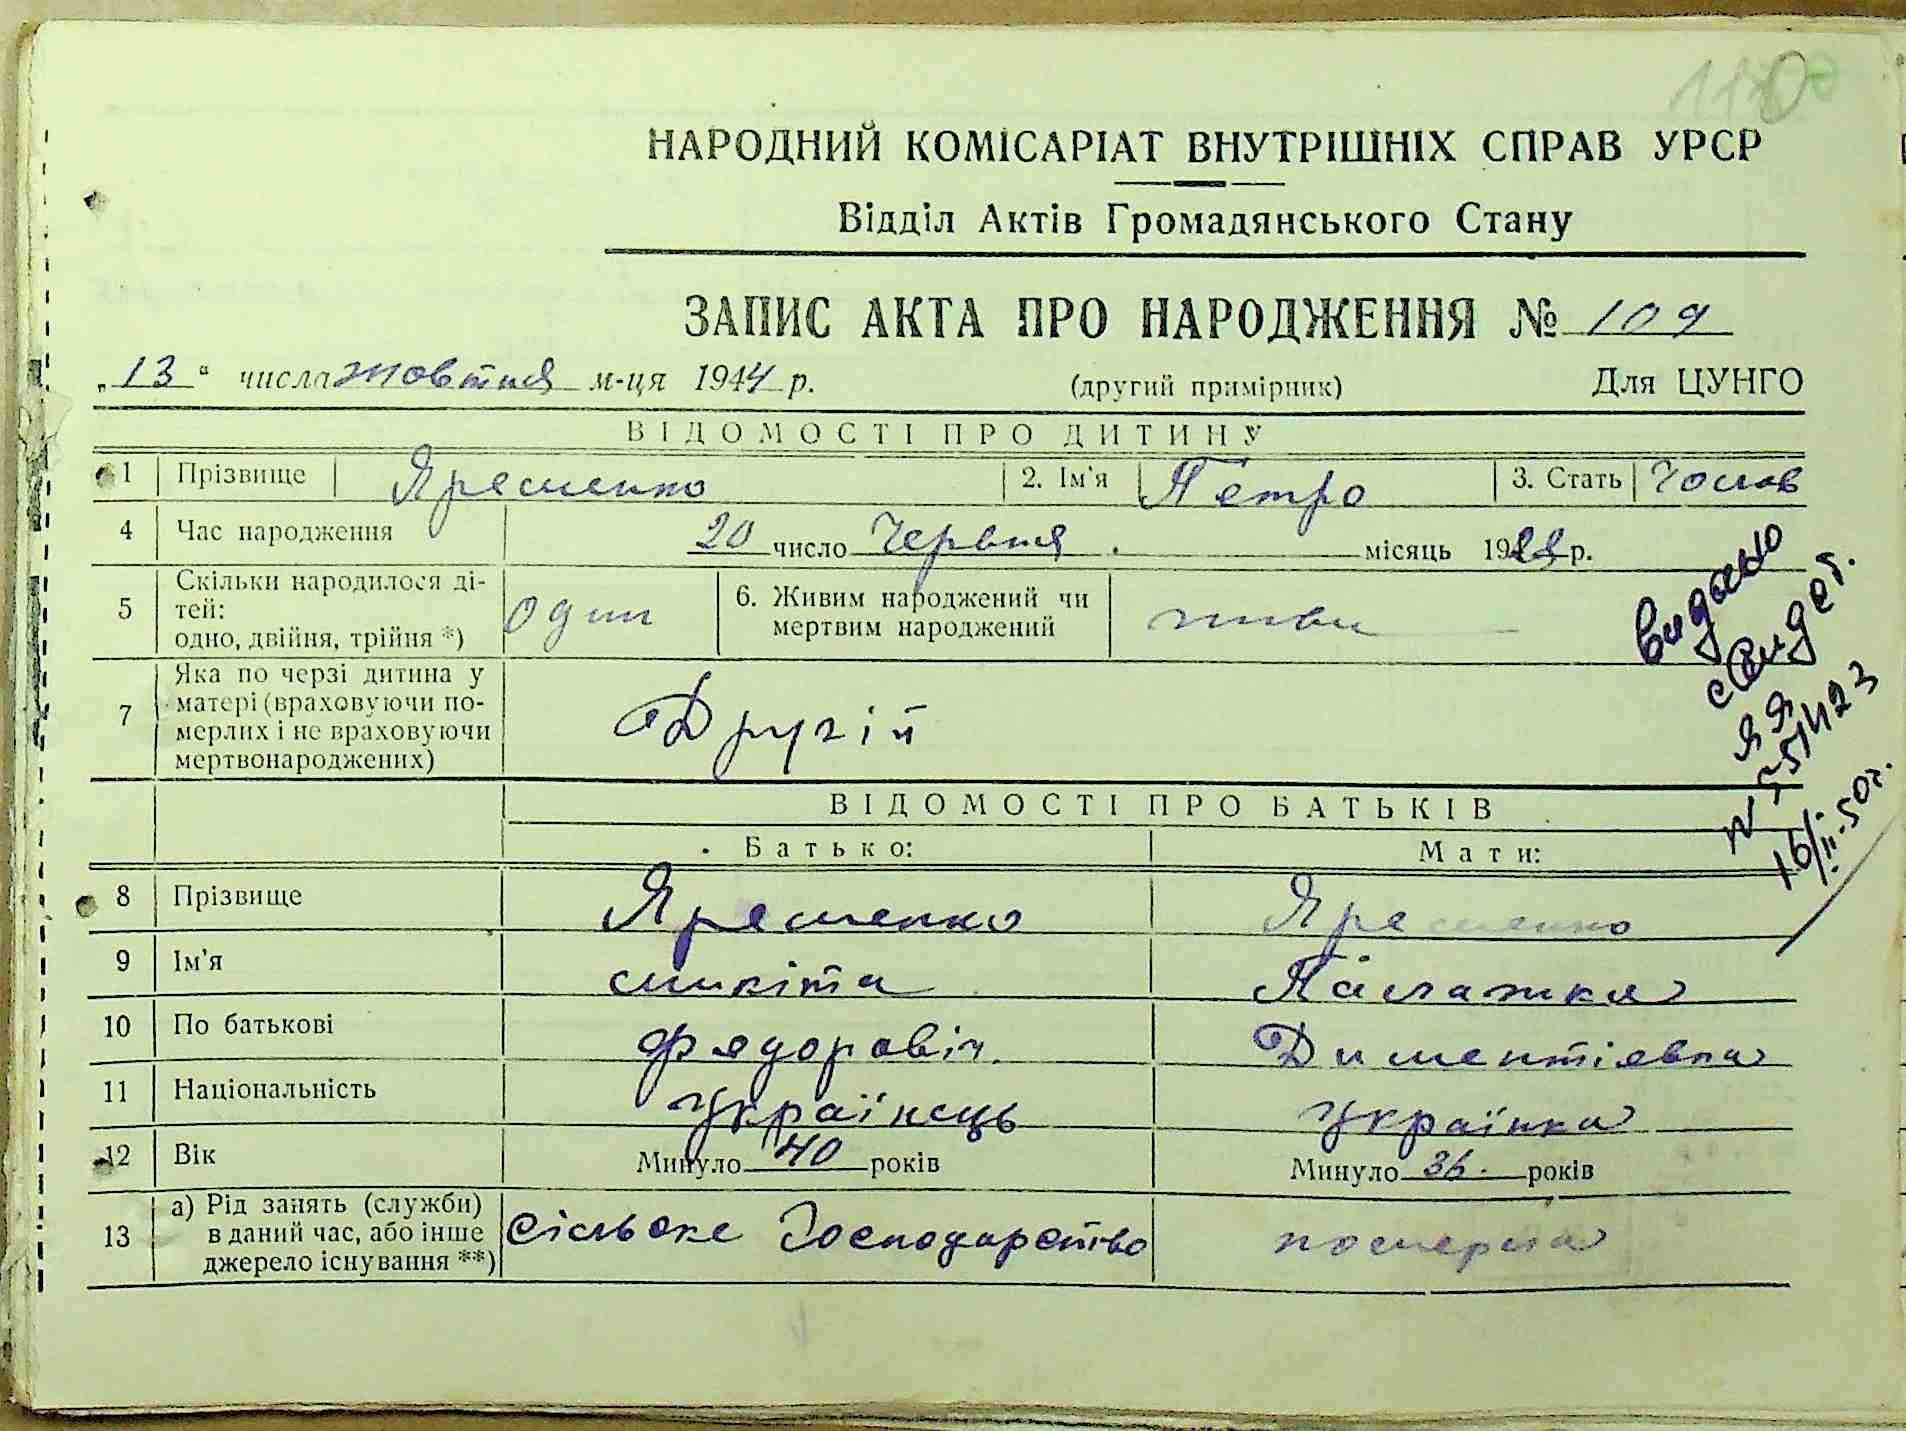 110
НАРОДНИЙ КОМІСАРІАТ ВНУТРІШНІХ СПРАВ УРСР
Відділ Актів Громадянського Стану
ЗАПИС АКТА ПРО НАРОДЖЕННЯ № 109
„13“ числа жовтня м-ця 1944 р. (другий примірник) Для ЦУНГО
ВІДОМОСТІ ПРО ДИТИНУ
1 Прізвище Яременко 2. Ім'я Петро 3. Стать Чолов
4 Час народження 20 число Червня місяць 19 р.
5 Скільки народилося ді-
тей:
одно, двійня, трійня *) Один 6. Живим народжений чи
мертвим народжений живи
7 Яка по черзі дитина у
матері (враховуючи по-
мерлих і не враховуючи
мертвонароджених) Другій
видано
свидет.
ЯЯ
№ 551423
16/II-50г.
ВІДОМОСТІ ПРО БАТЬКІВ
Батько: Мати:
8 Прізвище Яременко Яременко
9 Ім'я микіта Палажка
10 По батькові Фядоровіч Диментіявна
11 Національність Українець Українка
12 Вік Минуло 40 років Минуло 36 років
13 а) Рід занять (служби)
в даний час, або інше
джерело існування **) Сільске Господарство померла